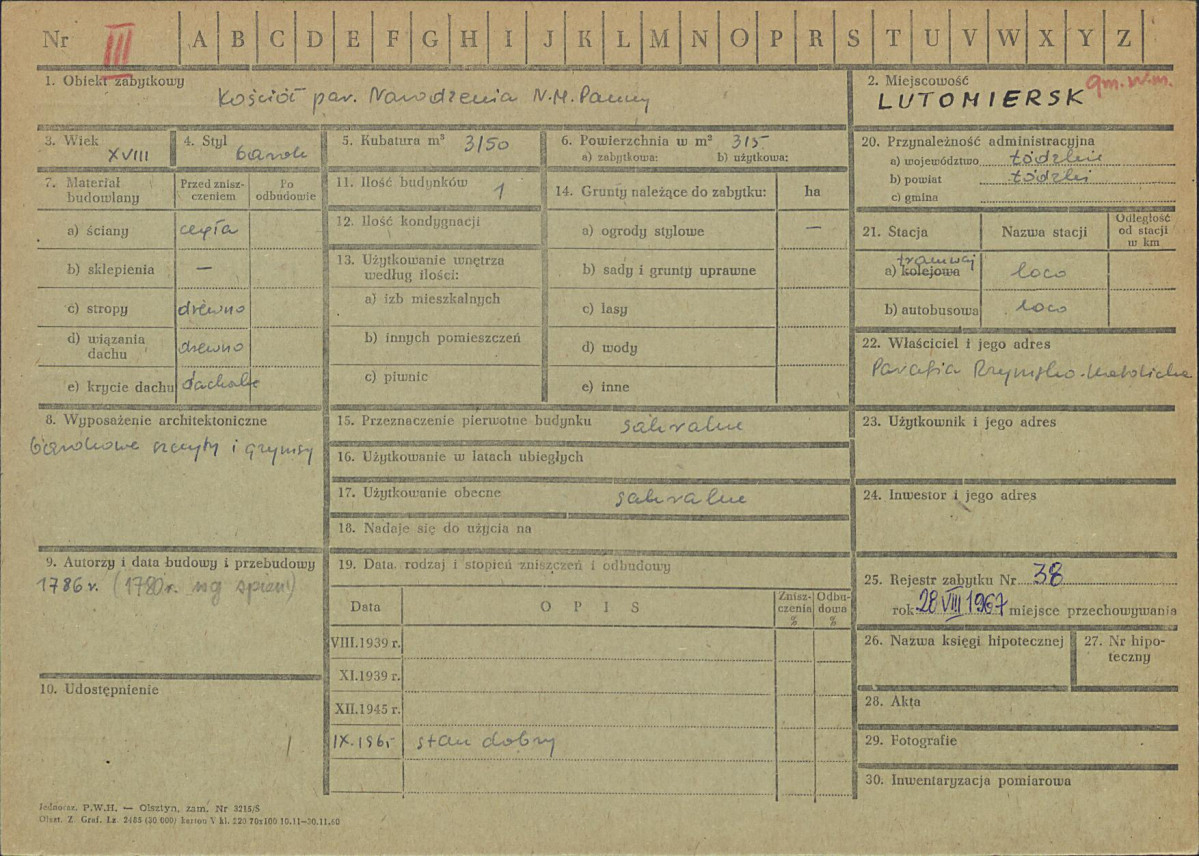 Nr III A B C D E F G H I J K L M N O P R S T U V W X Y Z
1. Obiekt zabytkowy
Kościół par. Narodzenia N.M. Panny
2. Miejscowość gm. w.m.
LUTOMIERSK
3. Wiek
XVIII
4. Styl
barok
5. Kubatura m³ 3150
6. Powierzchnia w m² 315
a) zabytkowa: b) użytkowa:
7. Materiał budowlany
Przed zniszczeniem
Po odbudowie
a) ściany cegła
b) sklepienia —
c) stropy drewno
d) wiązania dachu drewno
e) krycie dachu
8. Wyposażenie architektoniczne
barokowe szczyty i gzymsy
9. Autorzy i data budowy i przebudowy
1786 r. (1780 r. wg
10. Udostępnienie
11. Ilość budynków 1
12. Ilość kondygnacji
13. Użytkowanie wnętrza
według ilości:
a) izb mieszkalnych
b) innych pomieszczeń
c) piwnic
14. Grunty należące do zabytku: ha
a) ogrody stylowe —
b) sady i grunty uprawne
c) lasy
d) wody
e) inne
15. Przeznaczenie pierwotne budynku sakralne
16. Użytkowanie w latach ubiegłych
17. Użytkowanie obecne sakralne
18. Nadaje się do użycia na
19. Data, rodzaj i stopień zniszczeń i odbudowy
Data OPIS Zniszczenia % Odbudowa %
VIII.1939 r.
XI.1939 r.
XII.1945 r.
IX.1965 stan dobry
20. Przynależność administracyjna
a) województwo łódzkie
b) powiat łódzki
c) gmina
21. Stacja Nazwa stacji Odległość od stacji w km
tramwaj
a) kolejowa loco
b) autobusowa loco
22. Właściciel i jego adres
Parafia Rzymsko-katolicka
23. Użytkownik i jego adres
24. Inwestor i jego adres
25. Rejestr zabytku Nr 38
rok 28 VIII 1967 miejsce przechowywania
26. Nazwa księgi hipotecznej
27. Nr hipoteczny
28. Akta
29. Fotografie
30. Inwentaryzacja pomiarowa
Jednocz. P.W.H. — Olsztyn, zam. Nr 3215/S
Olszt. Z. Graf. Lz. 2485 (30 000) karton V kl. 220 70x100 10.11—30.11.60